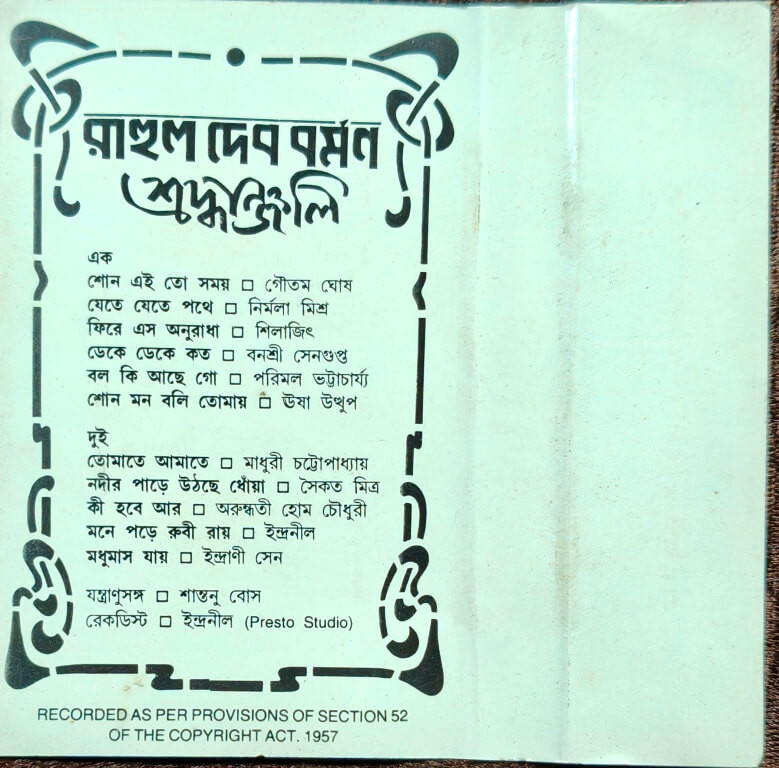 রাহুল দেব বর্মন
শ্রদ্ধাঞ্জলি
এক
শোন এই তো সময় □ গৌতম ঘোষ
যেতে যেতে পথে □ নির্মলা মিশ্র
ফিরে এস অনুরাধা □ শিলাজিৎ
ডেকে ডেকে কত □ বনশ্রী সেনগুপ্ত
বল কি আছে গো □ পরিমল ভট্টাচার্য্য
শোন মন বলি তোমায় □ ঊষা উত্থুপ
দুই
তোমাতে আমাতে □ মাধুরী চট্টোপাধ্যায়
নদীর পাড়ে উঠছে ধোঁয়া □ সৈকত মিত্র
কী হবে আর □ অরুন্ধতী হোম চৌধুরী
মনে পড়ে রুবী রায় □ ইন্দ্রনীল
মধুমাস যায় □ ইন্দ্রাণী সেন
যন্ত্রাণুসঙ্গ □ শান্তনু বোস
রেকডিস্ট □ ইন্দ্রনীল (Presto Studio)
RECORDED AS PER PROVISIONS OF SECTION 52
OF THE COPYRIGHT ACT. 1957